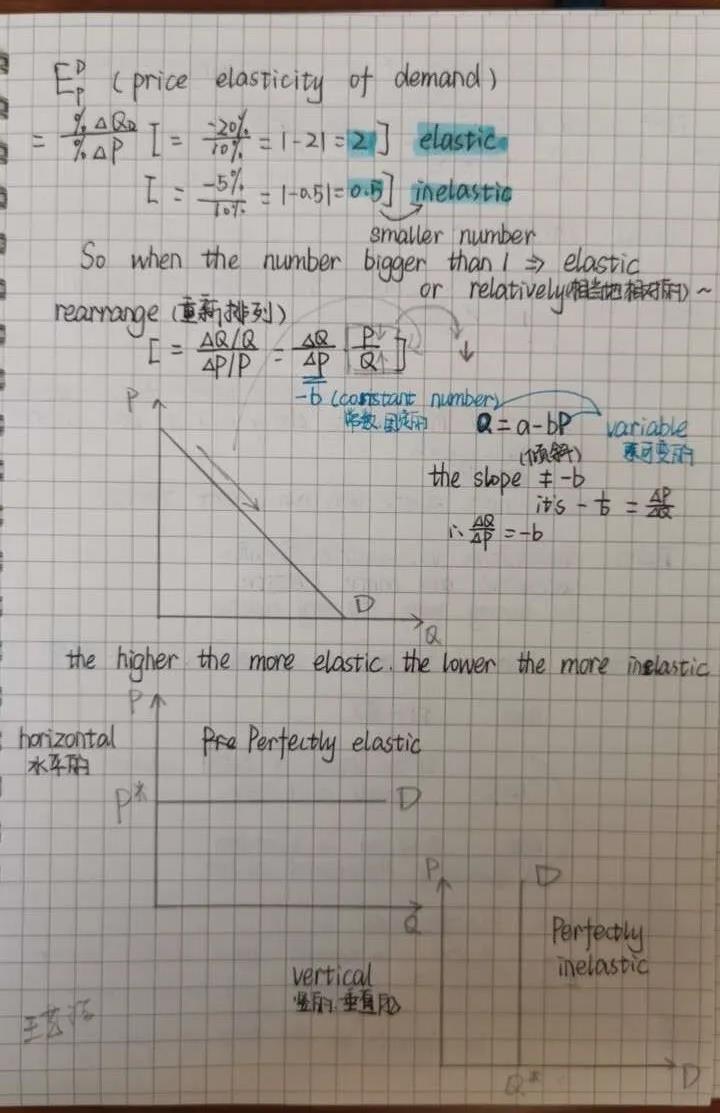 E_P^D (price elasticity of demand)
= %ΔQ_D / %ΔP [ = -20% / 10% = |-2| = 2 ] elastic.
[ = -5% / 10% = |-0.5| = 0.5 ] inelastic
smaller number
So when the number bigger than 1 ⇒ elastic
or relatively(相当地 相对的) ~
rearrange (重新排列)
[ = ΔQ/Q / ΔP/P = ΔQ / ΔP [ P↓ / Q↑ ] ↓
-b (constant number)
常数 固定的
Q = a-bP variable
可变的
(倾斜)
the slope ≠ -b
it's - 1/b = ΔP / ΔQ
∴ ΔQ / ΔP = -b
P
D
Q
the higher the more elastic. the lower the more inelastic
P
horizontal
水平的
Perfectly elastic
P* D
Q
P D
Perfectly
inelastic
vertical
竖的. 垂直的
Q* D